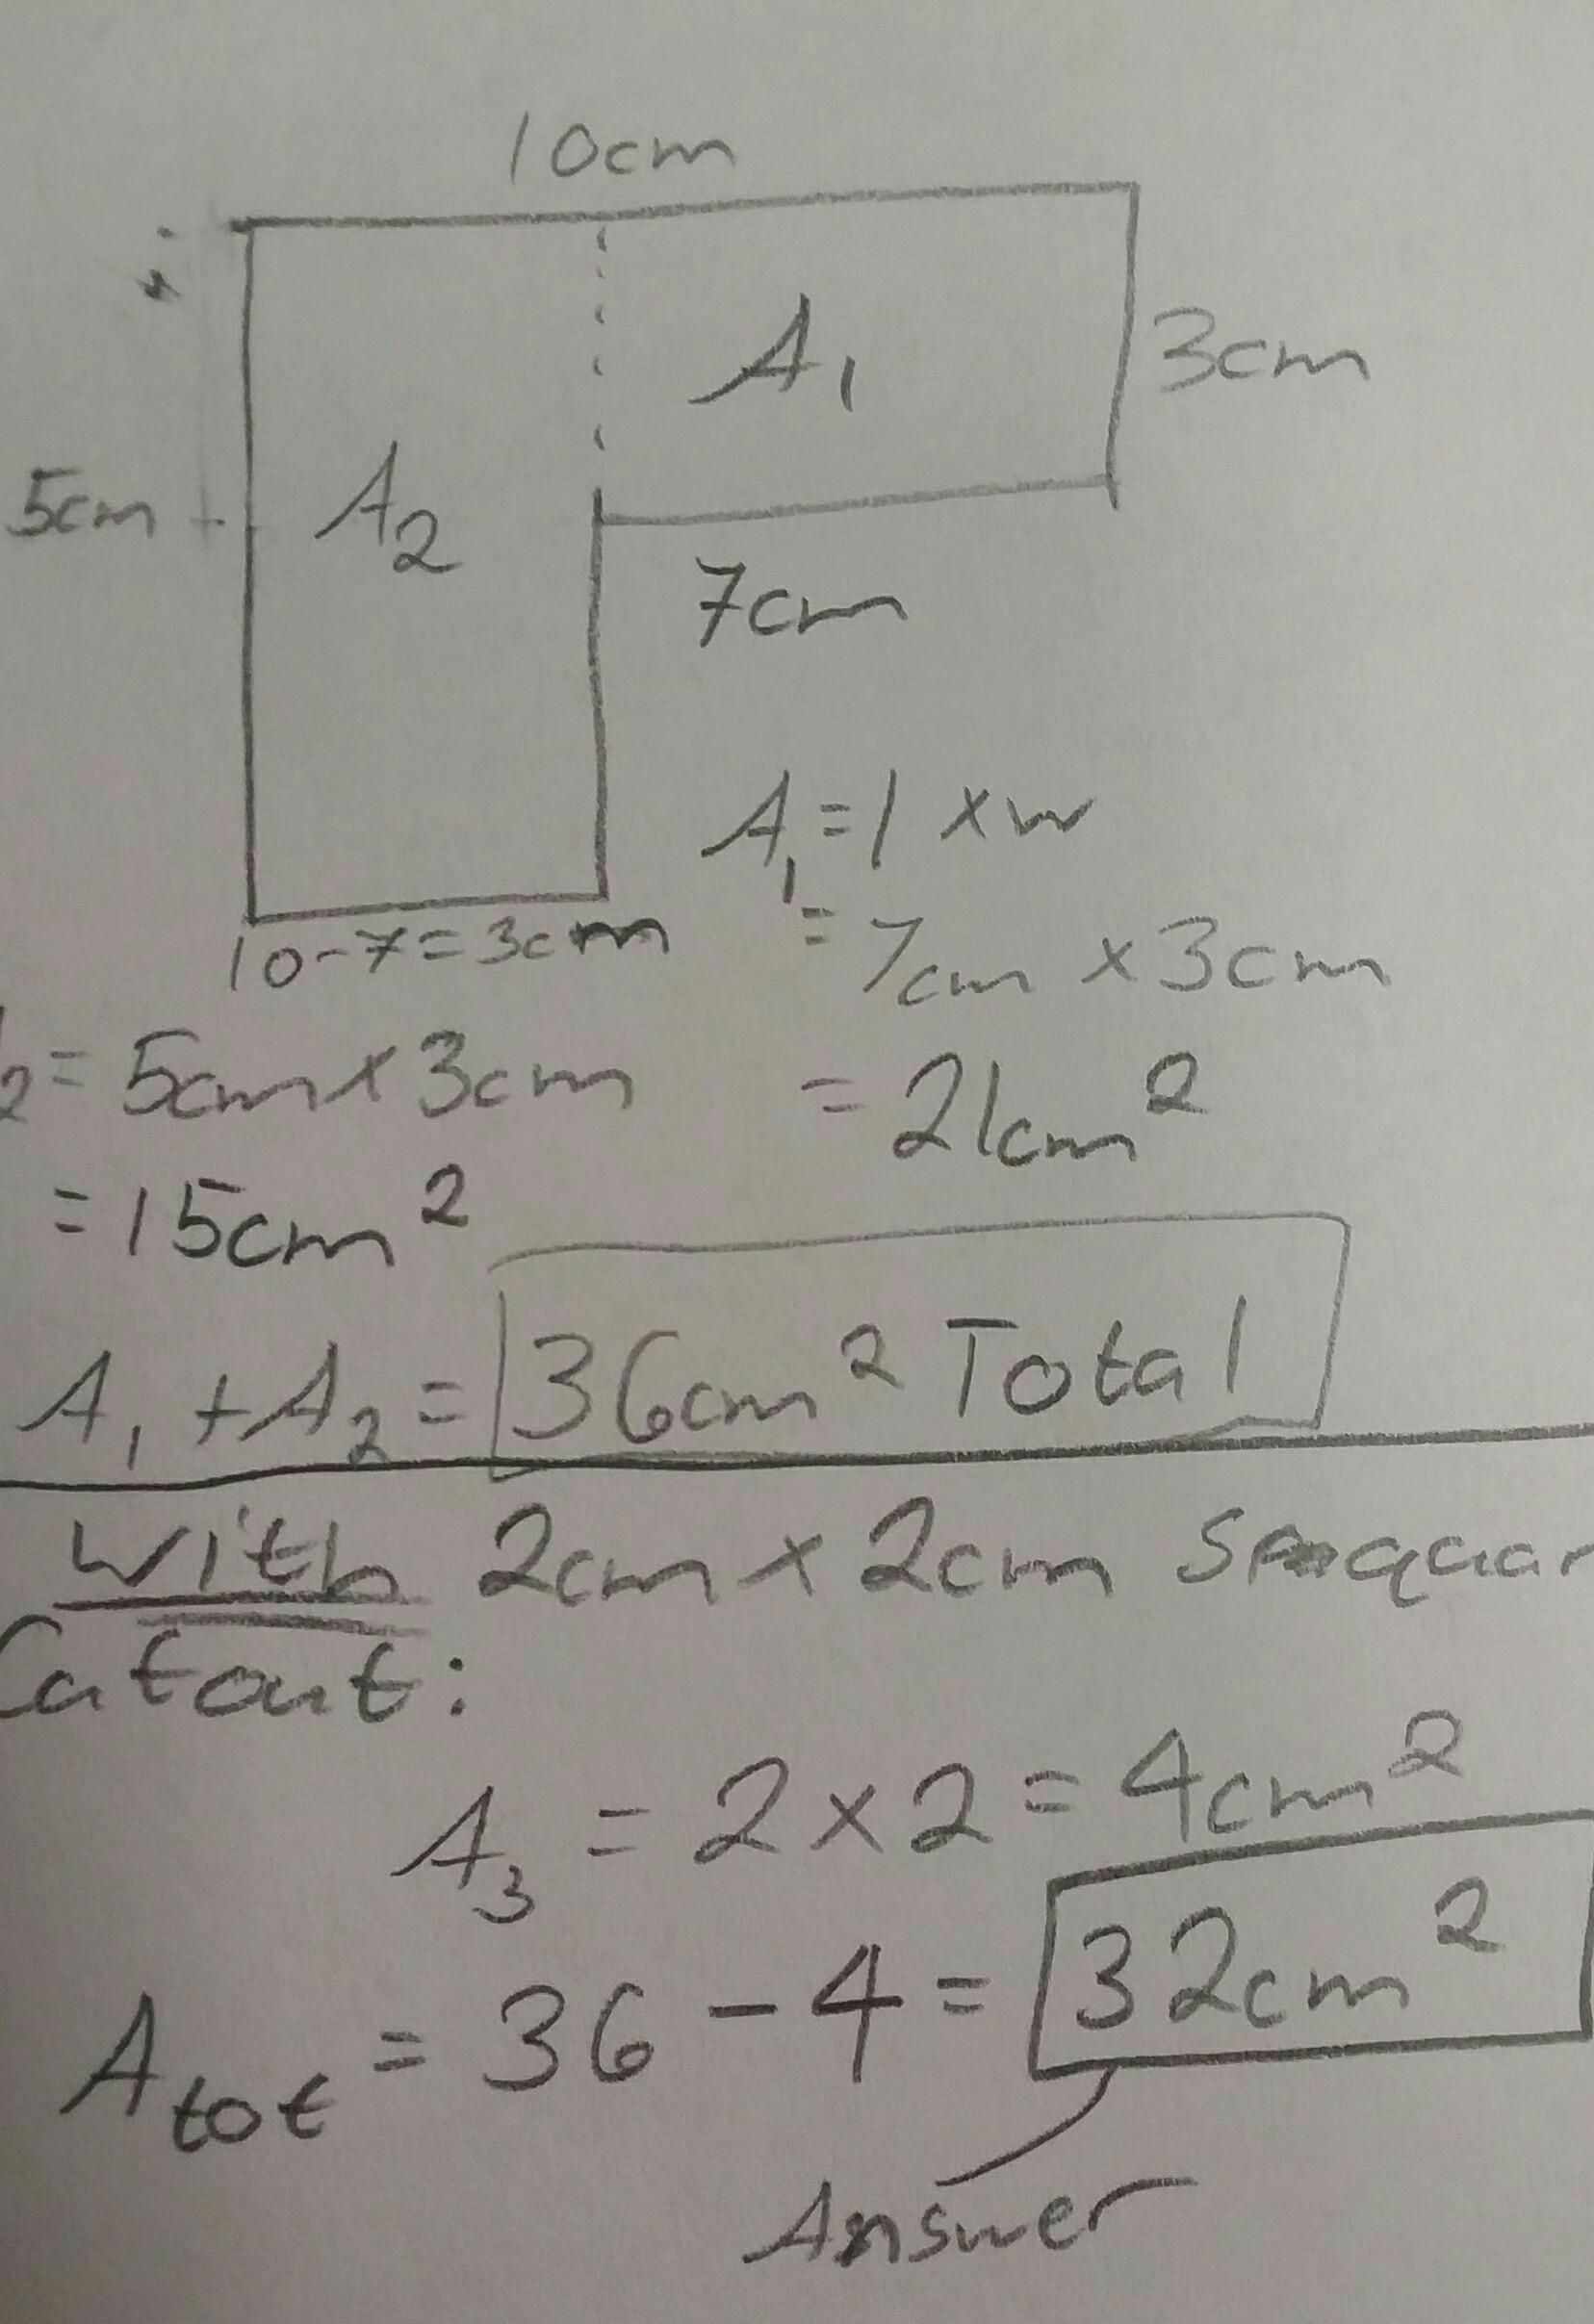 10cm
A₁
3cm
5cm
A₂
7cm
A₁ = l × w
10-7=3cm
= 7cm × 3cm
₂ = 5cm × 3cm
= 21cm²
= 15cm²
A₁ + A₂ = 36cm² Total
With 2cm × 2cm
Cutout:
A₃ = 2 × 2 = 4cm²
A tot = 36 - 4 = 32cm²
Answer